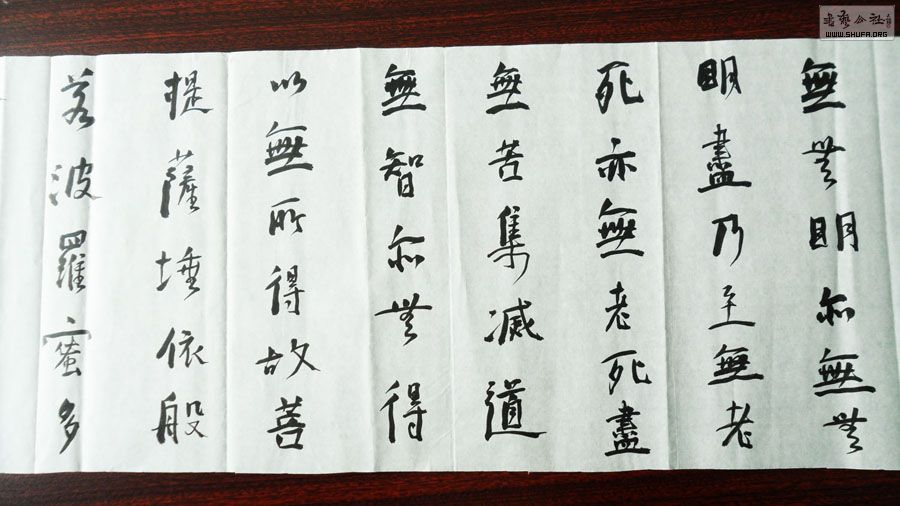 無無明亦無無
明盡乃至無老
死亦無老死盡
無苦集滅道
無智亦無得
以無所得故菩
提薩埵依般
若波羅蜜多
書藝公社
WWW.SHUFA.ORG